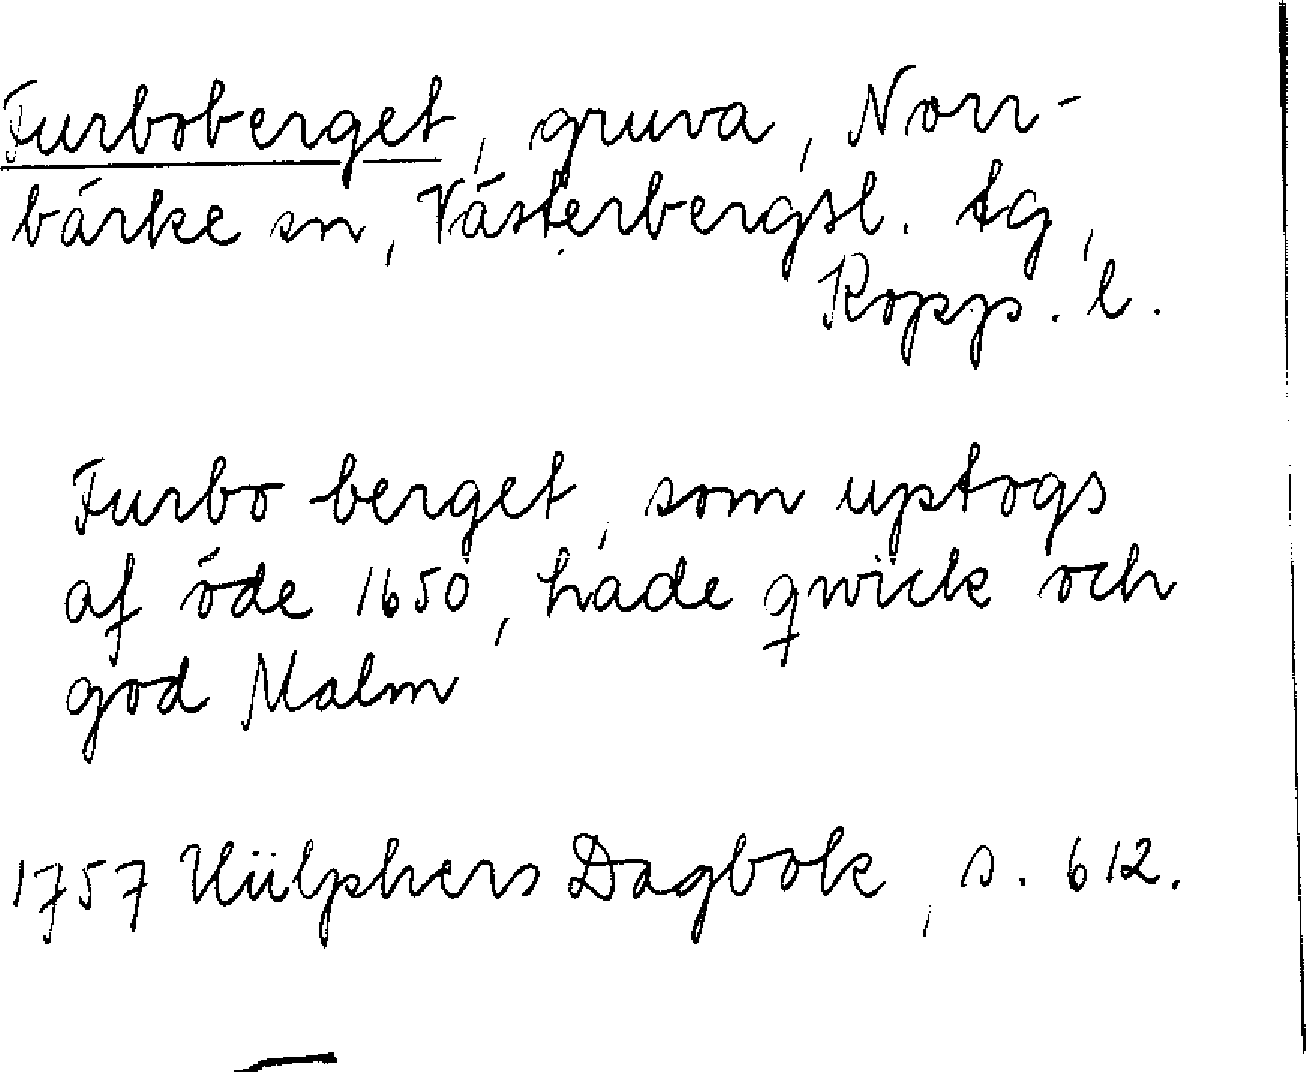 Furboberget, gruva, Norr-
bärke sn, Västerbergsl. tg,
Kopp. l.
Furbo berget, som uptogs
af öde 1650, hade qwick och
god Malm
1757 Hülphers Dagbok, s. 612.